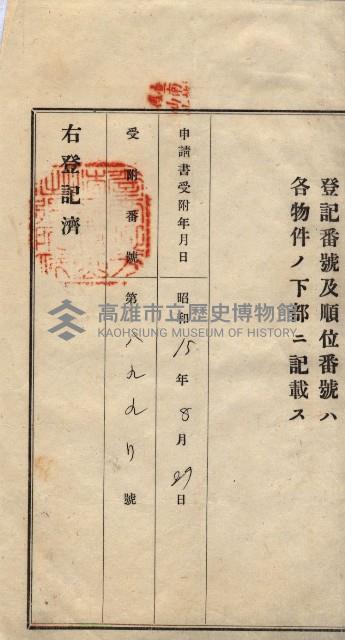 登記番號及順位番號ハ
各物件ノ下部ニ記載ス
申請書受附年月日
昭和15年8月29日
受附番號
第八九九り號
右登記濟
高雄市立歷史博物館
KAOHSIUNG MUSEUM OF HISTORY